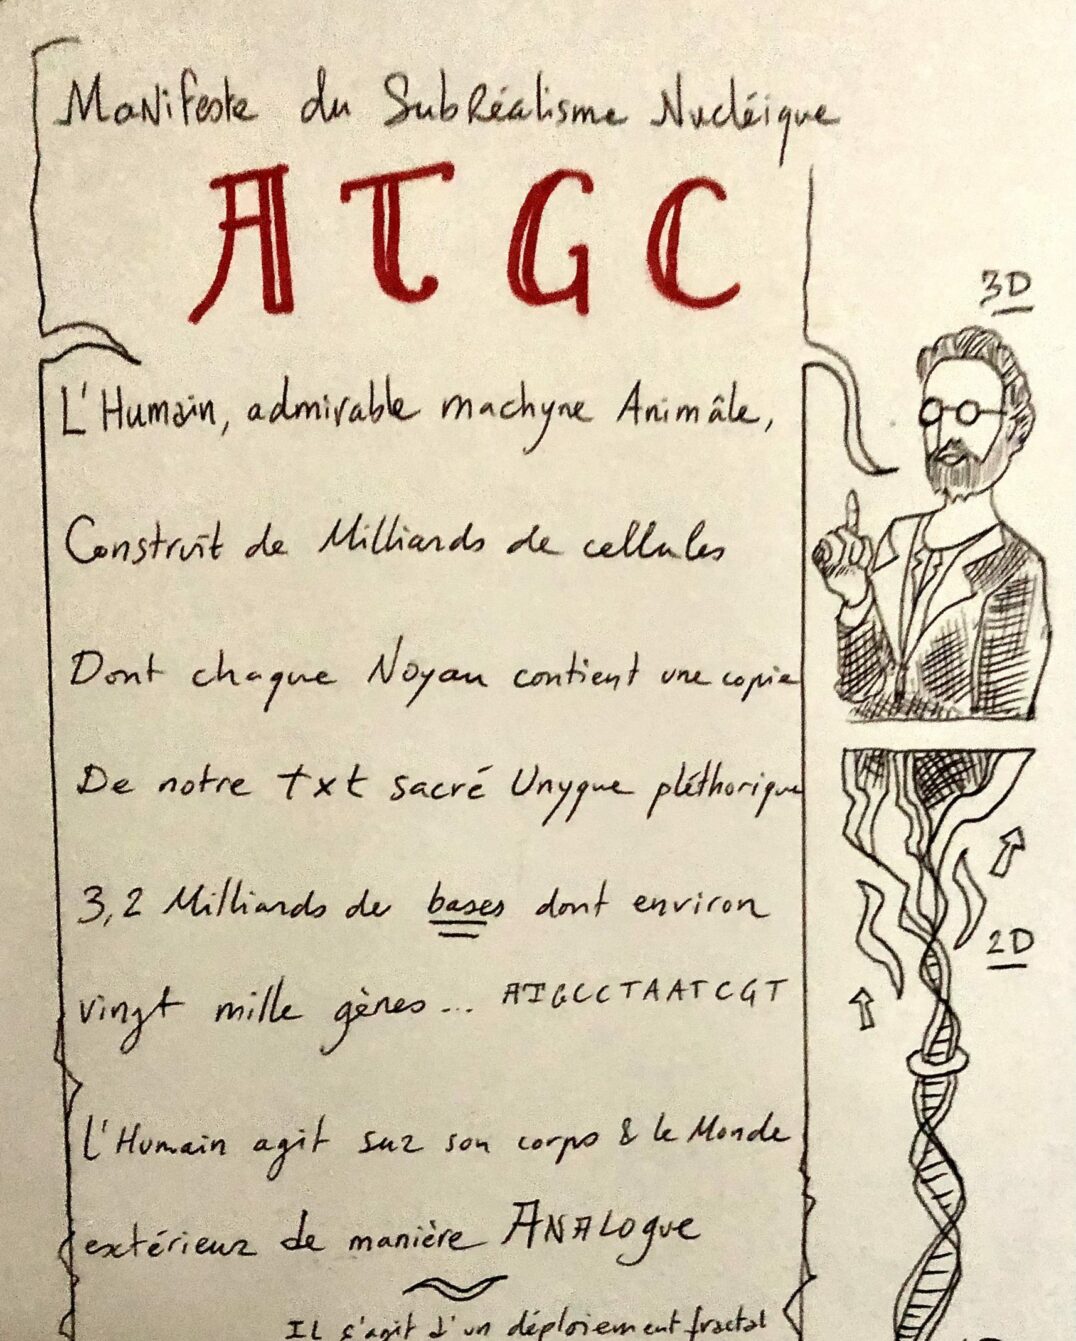 Manifeste du SubRéalisme Nucléique
ATGC
3D
L'Humain, admirable machyne Animâle,
Construit de Milliards de cellules
Dont chaque Noyau contient une copie
De notre txt sacré Unyque pléthorique
3,2 Milliards de bases dont environ
2D
vingt mille gènes... ATGCCTAATCGT
L'Humain agit sur son corps & le Monde
extérieur de manière ANALOgue
IL s'agit d'un déploiement fractal